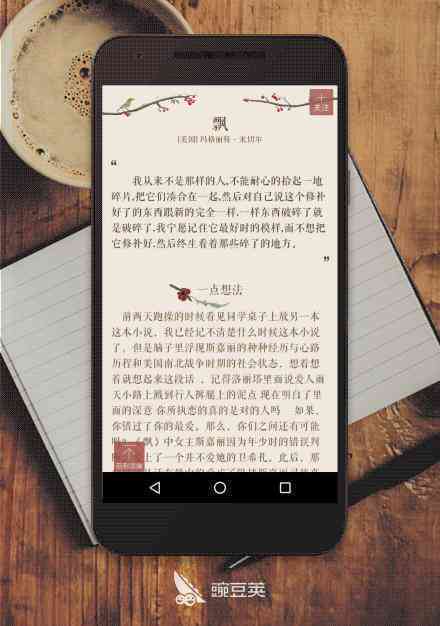 关注
飘
[美国] 玛格丽特·米切尔
“
我从来不是那样的人,不能耐心的拾起一地
碎片,把它们凑合在一起,然后对自己说这个修补
好了的东西跟新的完全一样.一样东西破碎了就
是破碎了,我宁愿记住它最好时的模样,而不想把
它修补好.然后终生看着那些碎了的地方。
”
一点想法
前两天跑操的时候看见同学桌子上放另一本
这本小说。我已经记不清是什么时候这本小说
了。但是脑子里浮现斯嘉丽的种种经历与心路
历程和美国南北战争时期的社会状态。想着想
着就想起来这段话 。记得洛丽塔里面说爱人雨
天小路上溅到行人裤腿上的泥点 现在明白了里
面的深意 你所执念的真的是对的人吗 如果,
你错过了你的最爱。那么。你们之间还有可能
《飘》中女主斯嘉丽因为年少时的错误判
上了一个并不爱她的卫希礼。此后。那
豌豆荚